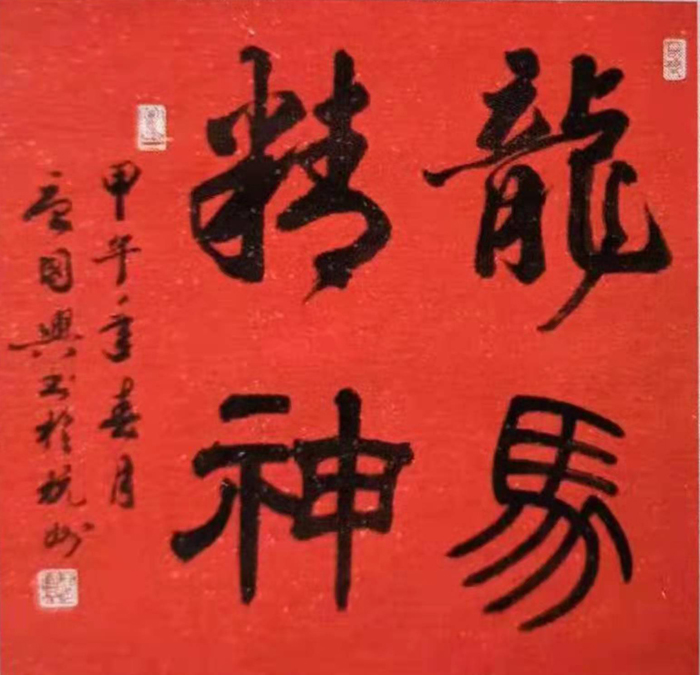 龍馬
精神
甲午年春月
國興书於杭州